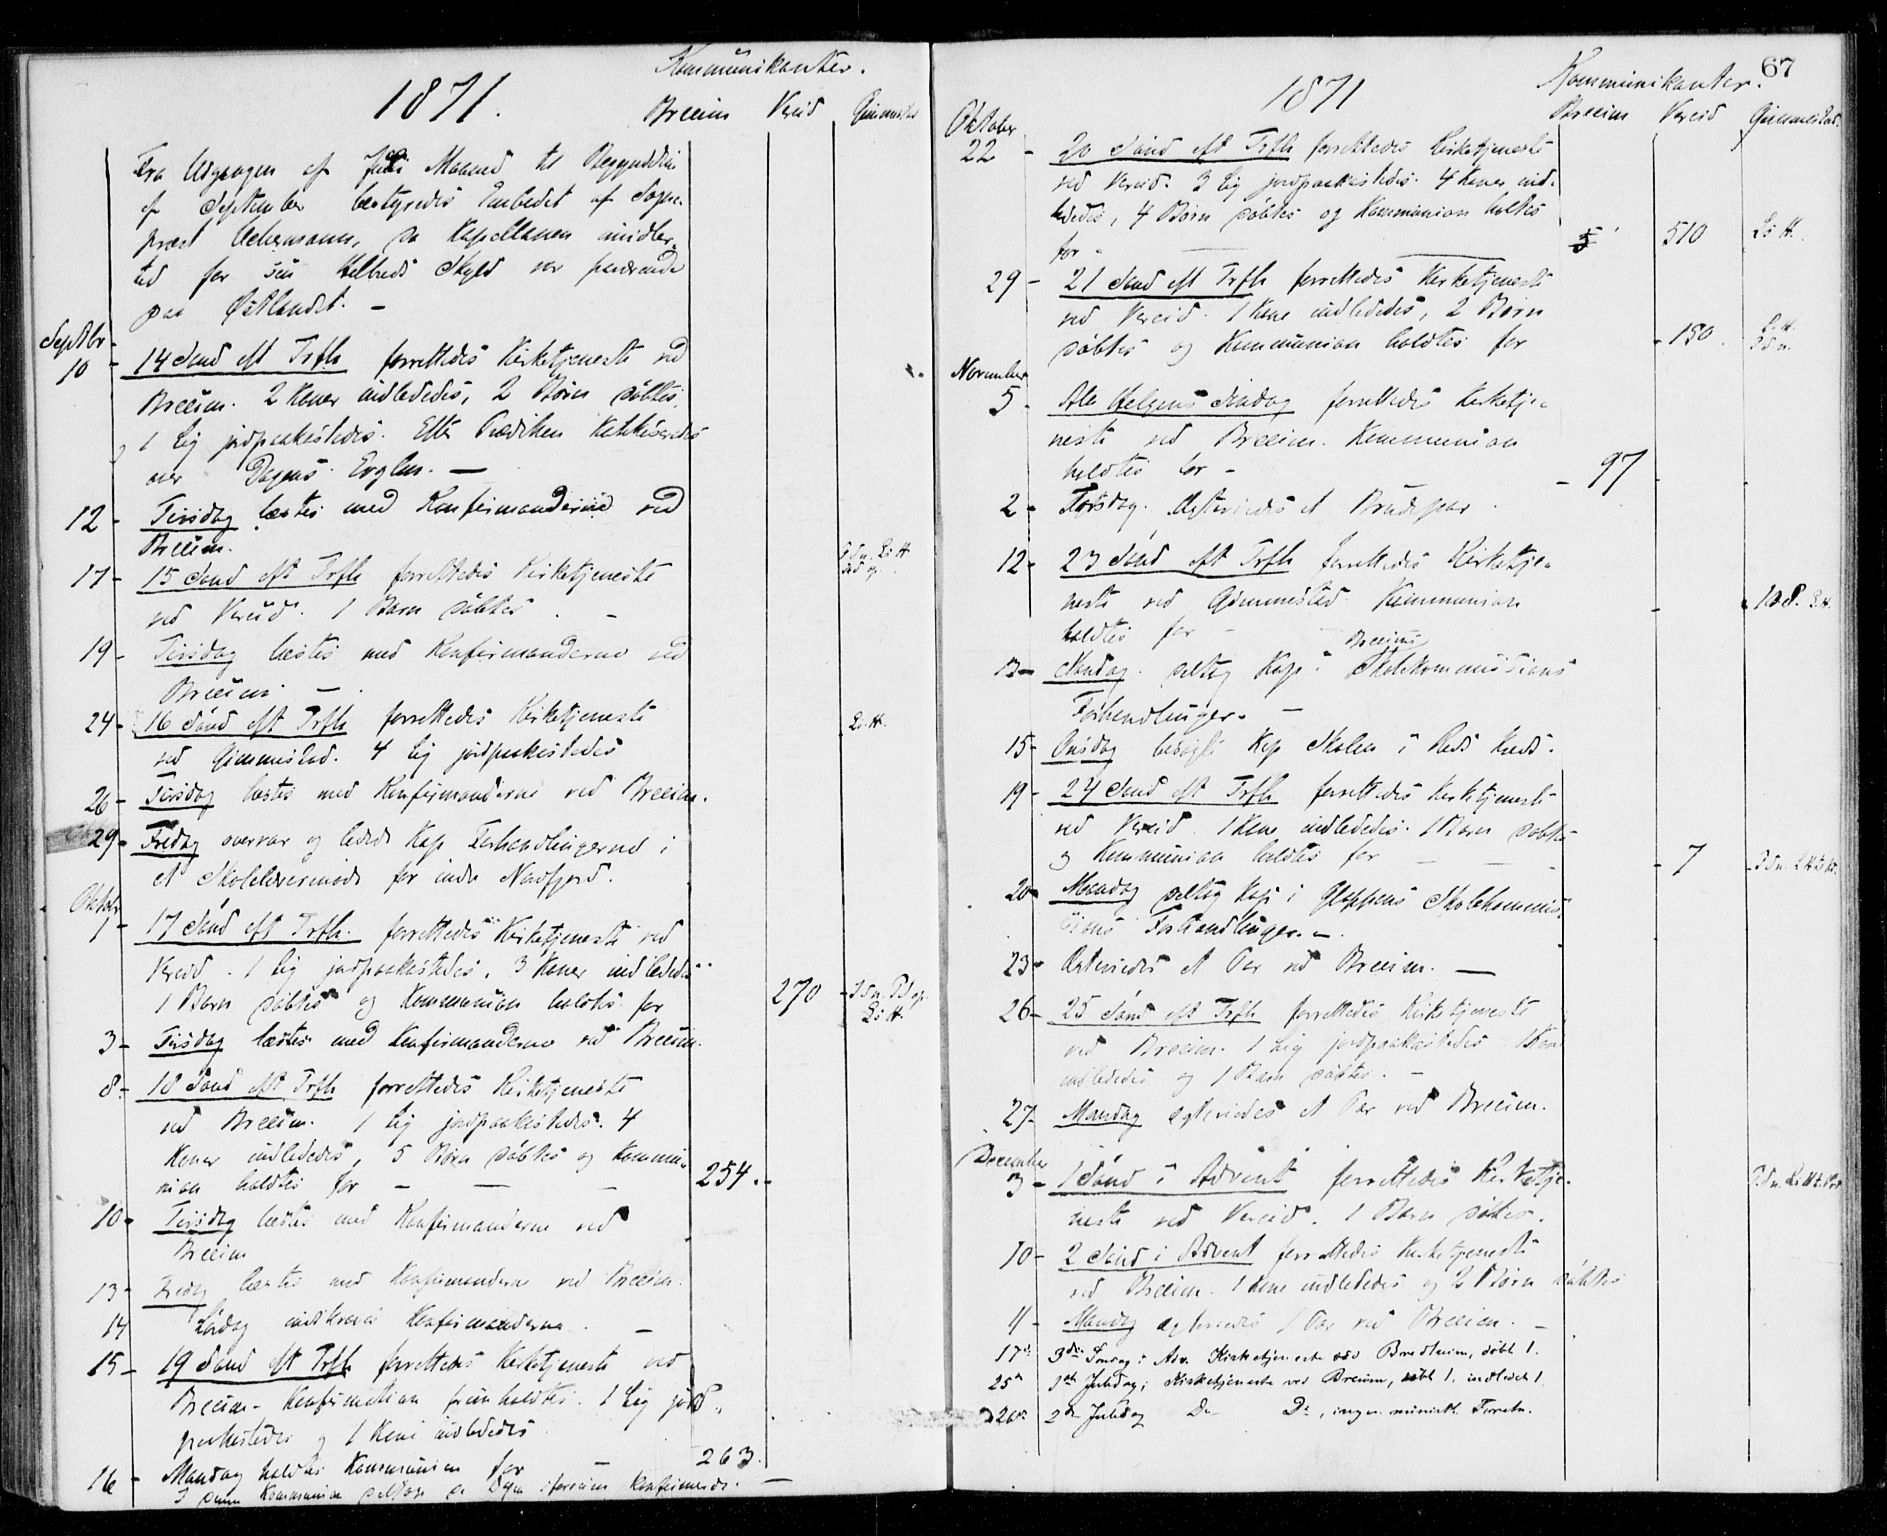 1871.
Kommunikanter.
Breeim Vereid Gimmestad
Fra Udgangen af Juli Maaned til Begyndelsen
af September bestyredes Embedet af Sogne-
præst Uchermann, da Kapellanen imidler-
tid for sin Helbreds Skyld var fraværende
paa Østlandet. -
Septbr
10 - 14 Sønd eft Trfh forrettedes Kirketjeneste ved
Breeim. 2 Koner indlededes, 2 Børn døbtes,
1 Lig jordpaakastedes. Efter Prædiken Katekiseredes
over Dagens Evglm. -
12 - Tirsdag læstes med Konfirmanderne ved
Breeim.
17 - 15 Sønd eft Trfh forrettedes Kirketjeneste
ved Vereid. 1 Barn døbtes. -
19 - Tirsdag læstes med Konfirmanderne ved
Breeim -
24 - 16 Sønd eft Trfh forrettedes Kirketjeneste
ved Gimmestad. 4 Lig jordpaakastedes L. H.
26 - Tirsdag læstes med Konfirmanderne ved Breeim.
29 - Fredag overvar og ledede Kap Forhandlingerne i
et Skolelærermøde for indre Nordfjord.
Oktobr
1 - 17 Sønd eft Trfh. forrettedes Kirketjeneste ved
Vereid. 1 Lig jordpaakastedes, 3 Koner indlededes
1 Barn døbtes og Kommunion holdtes for 270
3 - Tirsdag læstes med Konfirmanderne ved Breeim.
8 - 18 Sønd eft Trfh forrettedes Kirketjeneste
ved Breeim. 1 Lig jordpaakastedes. 4
Koner indlededes, 5 Børn døbtes og Kommu-
nion holdtes for - - - 254.
10 - Tirsdag læstes med Konfirmanderne ved
Breeim
13 - Fredag læstes med Konfirmanderne ved Breeim.
14 Lørdag indskreves Konfirmanderne. -
15 - 19 Sønd eft Trfh forrettedes Kirketjeneste ved
Breeim - Konfirmation fremholdtes. 1 Lig jord-
paakastedes og 1 Kone indlededes.
16 - Mandag holdtes Kommunion for - 263.
I denne Kommunion deltoge de Dagen iforveien konfirmerede. -
67
1871
Kommunikanter.
Breeim Vereid Gimmestad.
Oktober
22 - 20 Sønd eft Trfh forrettedes Kirketjeneste
ved Vereid. 3 Lig jordpaakastedes. 4 Koner ind-
lededes, 4 Børn døbtes og Kommunion holdtes
for - 510 L. H.
29 - 21 Sønd eft Trfh forrettedes Kirketjeneste
ved Vereid. 1 Kone indlededes, 2 Børn
døbtes og Kommunion holdtes for 150
November
5 - Alle Helgens Søndag forrettedes Kirketje-
neste ved Breeim. Kommunion
holdtes for - 97
2 - Torsdag. Ægteviedes et Brudepar.
12 - 23 Sønd eft Trfh forrettedes Kirketje-
neste ved Gimmestad Kommunion 108. L. H.
holdtes for -
13 - Mandag. deltog Kap i Breeims Skolekommissions
Forhandlinger. -
15 - Onsdag besøgte Kap Skolen i Reds Kreds.
19 - 24 Sønd eft Trfh forrettedes Kirketjeneste
ved Vereid. 1 Kone indlededes. 1 Barn døbtes
og Kommunion holdtes for - - - 7
20 - Mandag deltog Kap i Gloppens Skolekommis-
sions Forhandlinger. -
23 - Ægteviedes et Par ved Breeim. -
26 - 25 Sønd eft Trfh forrettedes Kirketjeneste
ved Breeim. 1 Lig jordpaakastedes 1 Kone
indlededes og 1 Barn døbtes. -
27 - Mandag ægteviedes et Par ved Breeim.
December
3 - 1 Sønd i Advent forrettedes Kirketje-
neste ved Vereid. 1 Barn døbtes.
10 - 2 Sønd i Advent forrettedes Kirketjeneste
ved Breeim. 1 Kone indlededes og 2 Børn døbtes
11 - Mandag ægteviedes 1 Par ved Breeim. -
17de 3die Søndag i Adv. Kirketjeneste ved Bredheim, døbt 1.
25de 1ste Juledag, Kirketjeneste ved Breeim, døbt 1. indledet 1.
26de 2den Juledag Do Do, ingen ministr. Forretn.